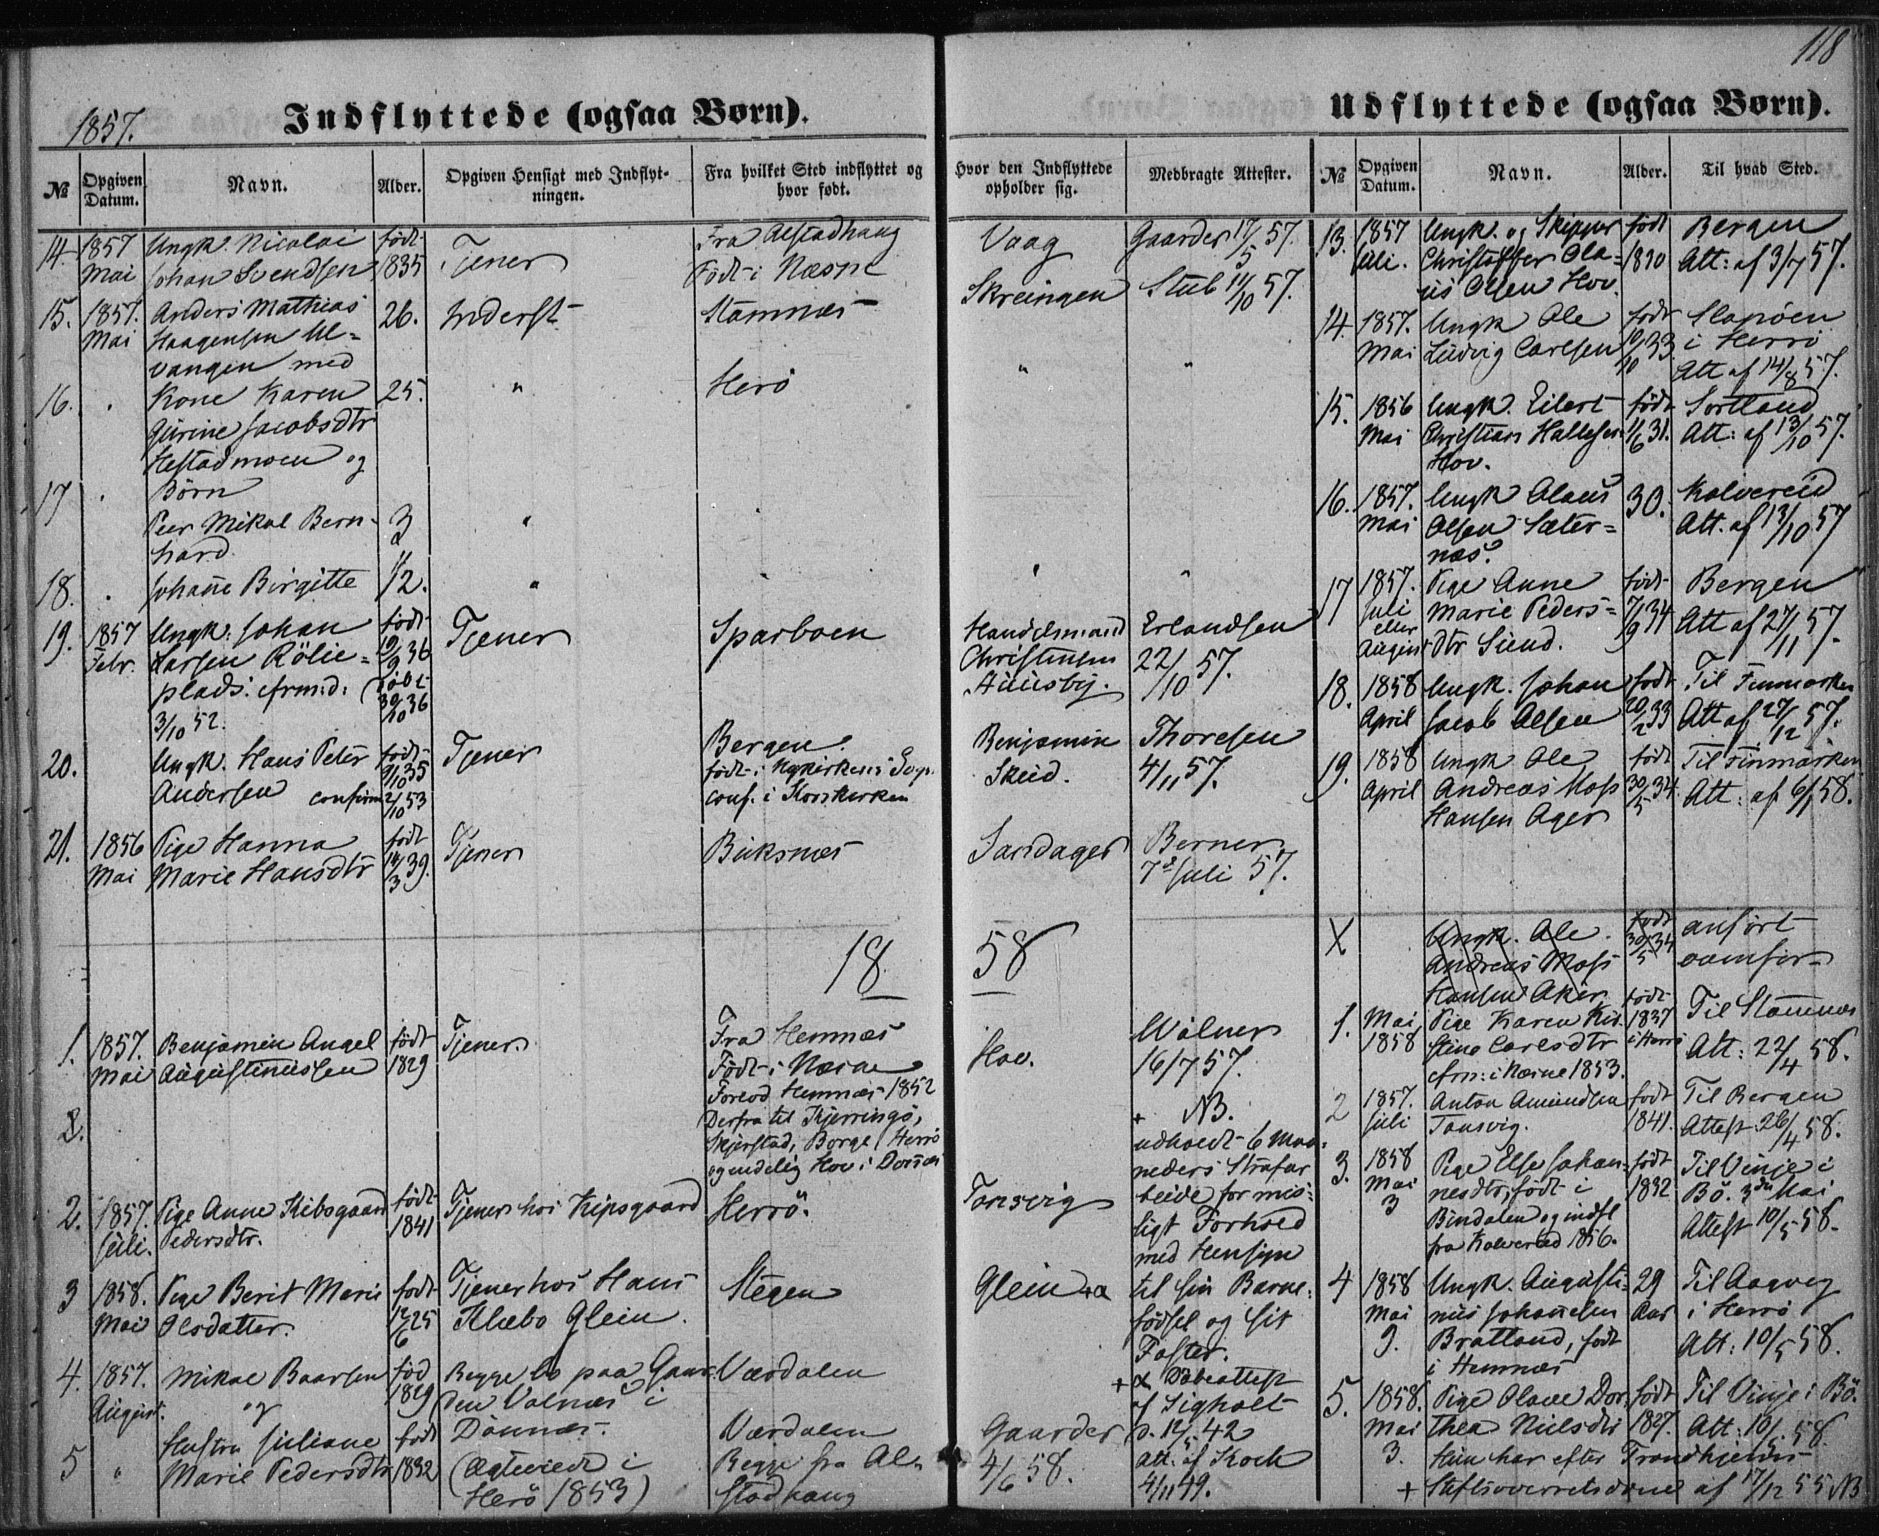 118
1857.
Indflyttede (ogsaa Børn).
No
Opgiven Datum.
Navn.
Alder.
Opgiven Hensigt med Indflyt-
ningen.
Fra hvilket Sted indflyttet og
hvor født.
Hvor den Indflyttede
opholder sig.
Medbragte Attester.
14. 1857 Ungk. Nicolai født Tjener Fra Alstadhaug Vaag Gaarder 17/5 57.
Mai Johan Svendsen 1835 Født i Næsne
15. 1857. Anders Mathias 26. Inderst Stamnæs Skreingen Stub 11/10 57.
Mai Haagensen Ul-
vangen med
16. Kone Karen 25. " Herö " "
Gurine Jacobsdtr
Hestadmoen og
17 Børn
Peer Mikal Bern- 3 "
hard
18. Johanne Birgitte 1/2. "
19. 1857 Ungk. Johan født Tjener Sparboen Handelsmand Erlandsen
Febr. Larsen Rölie- 19/9 36 Christensen 22/10 57.
plads. cfrm.d. født Huusby.
3/10 52. 30/10 36
20. Ungk. Hans Peter født Tjener Bergen. Benjamin Thoresen
9/10 35 født i Nykirkens Sogn Skeid. 4/11 57.
Andersen confirm 2/10 53 conf. i Korskirken
21. 1856 Pige Hanna født Tjener Buksnæs Sandager Berner
Mai Marie Hansdtr 14/3 39. 7de Juli 57.
18 58
1. 1857. Benjamin Angel født Tjener. Fra Hemnæs Hov. Wolner
Mai Augustinussen 1829 Født i Næsne 16/7 57.
Forlod Hemnæs 1852
2. Derfra til Kjerringö, + NB.
Skjerstad, Borge, Herrö udholdt 6 Maa-
og endelig Hov i Dønnæs neders Strafar
2. 1857. Pige Anne Kibsgaard født Tjener hos Kipsgaard Herrö. Tonsvig beide for mis-
Juli. Pedersdtr. 1841 ligt Forhold
med Hensyn
3 1858. Pige Berit Marie født Tjener hos Hans Stegen Glein +a til sin Barne-
Mai Olsdatter. 12/6 25 Klæbo Glein. födsel og sit
Foster.
4. 1857. Mikal Baarsen fød Begge bo paa Gaar- Værdalen + a Döbeattest
August. og 1829 den Valnæs i af Sigholt
Hustru Juliane født Dønnæs. Værdalen Gaarder d. 12/5 42
5 " Marie Pedersdtr 1832 (Ægteviede i Begge fra Al- 4/6 58. att. af Koch
Herö 1853) stadhaug 4/11 49.
Udflyttede (ogsaa Børn).
No
Opgiven Datum.
Navn.
Alder.
Til hvad Sted.
13. 1857 Ungk. og Skipper født Bergen
Juli. Christoffer Ola- 1830 Att: af 3/7 57.
us Olsen Hov.
14. 1857. Ungk Ole født Slapöen
Mai Ludvig Carlsen 10/10 33. i Herrö
Att af 14/8 57.
15. 1856 Ungk. Eilert født Sortland
Mai Christian Hallesen 11/6 31. Att: af 13/10 57.
Hov.
16. 1857. Ungk Olaus 30. Kolvereid
Mai Olsen Sæter- Att. af 13/10 57
næs.
17 1857. Pige Anne født Bergen
Juli Marie Peders- 7/9 34 Att af 27/11 57.
eller
August dtr Siend.
18. 1858 Ungk. Johan født Til Finmarken
April Jacob Olsen 20/2 33 Att af 27/12 57.
19. 1858 Ungk Ole født Til Finmarken
April Andreas Moss 30/5 34. Att: af 6/1 58.
Hansen Ager
X Ungk. Ole født anført
Andreas Moss 30/5 34 ovenfor
Hansen Aker
1. Mai Pige Karen Kir- født Til Stamnæs
1858 stine Carlsdtr 1837 i Herrö Att: 22/4 58.
cfrm: i Næsne 1853.
2 1857. Anton Amundsen født Til Bergen
Juli Tonsvig. 1841. Attest 26/4 58.
3. 1858 Pige Else Johan- født Til Vinje i
Mai nesdtr, født i 1832 Bö. 3die Mai
3 Bindalen og indfl Attest 10/5 58.
fra Kolvereid 1856.
4 1858 Ungk. Augusti- 29 Til Aagvog
Mai nus Johannesen Aar i Herrö
9. Bratland, født Att: 10/5 58.
i Hemnæs
5. 1858. Pige Olave Dor- født Til Vinje i Bö.
Mai thea Nielsdtr 1827. Att: 10/5 58.
3. Hun har efter Trondhjems
+ Stiftsoverretsdom af 17/12 55 NB